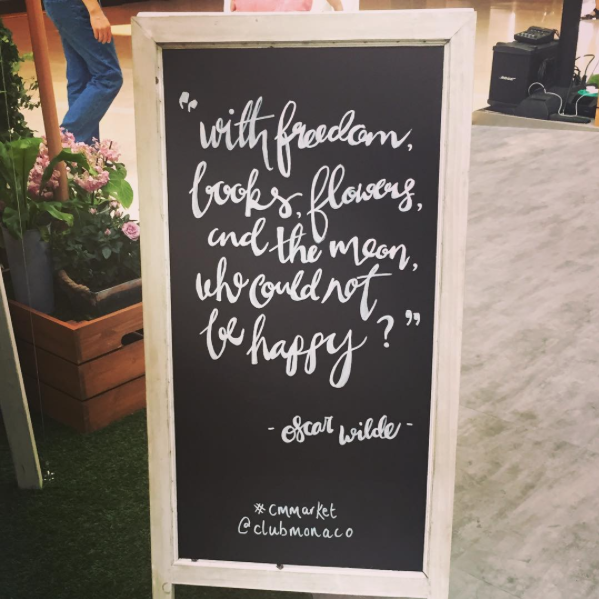 "with freedom,
books, flowers,
and the moon,
who could not
be happy?"
- oscar wilde -
#cmmarket
@clubmonaco
BOSE